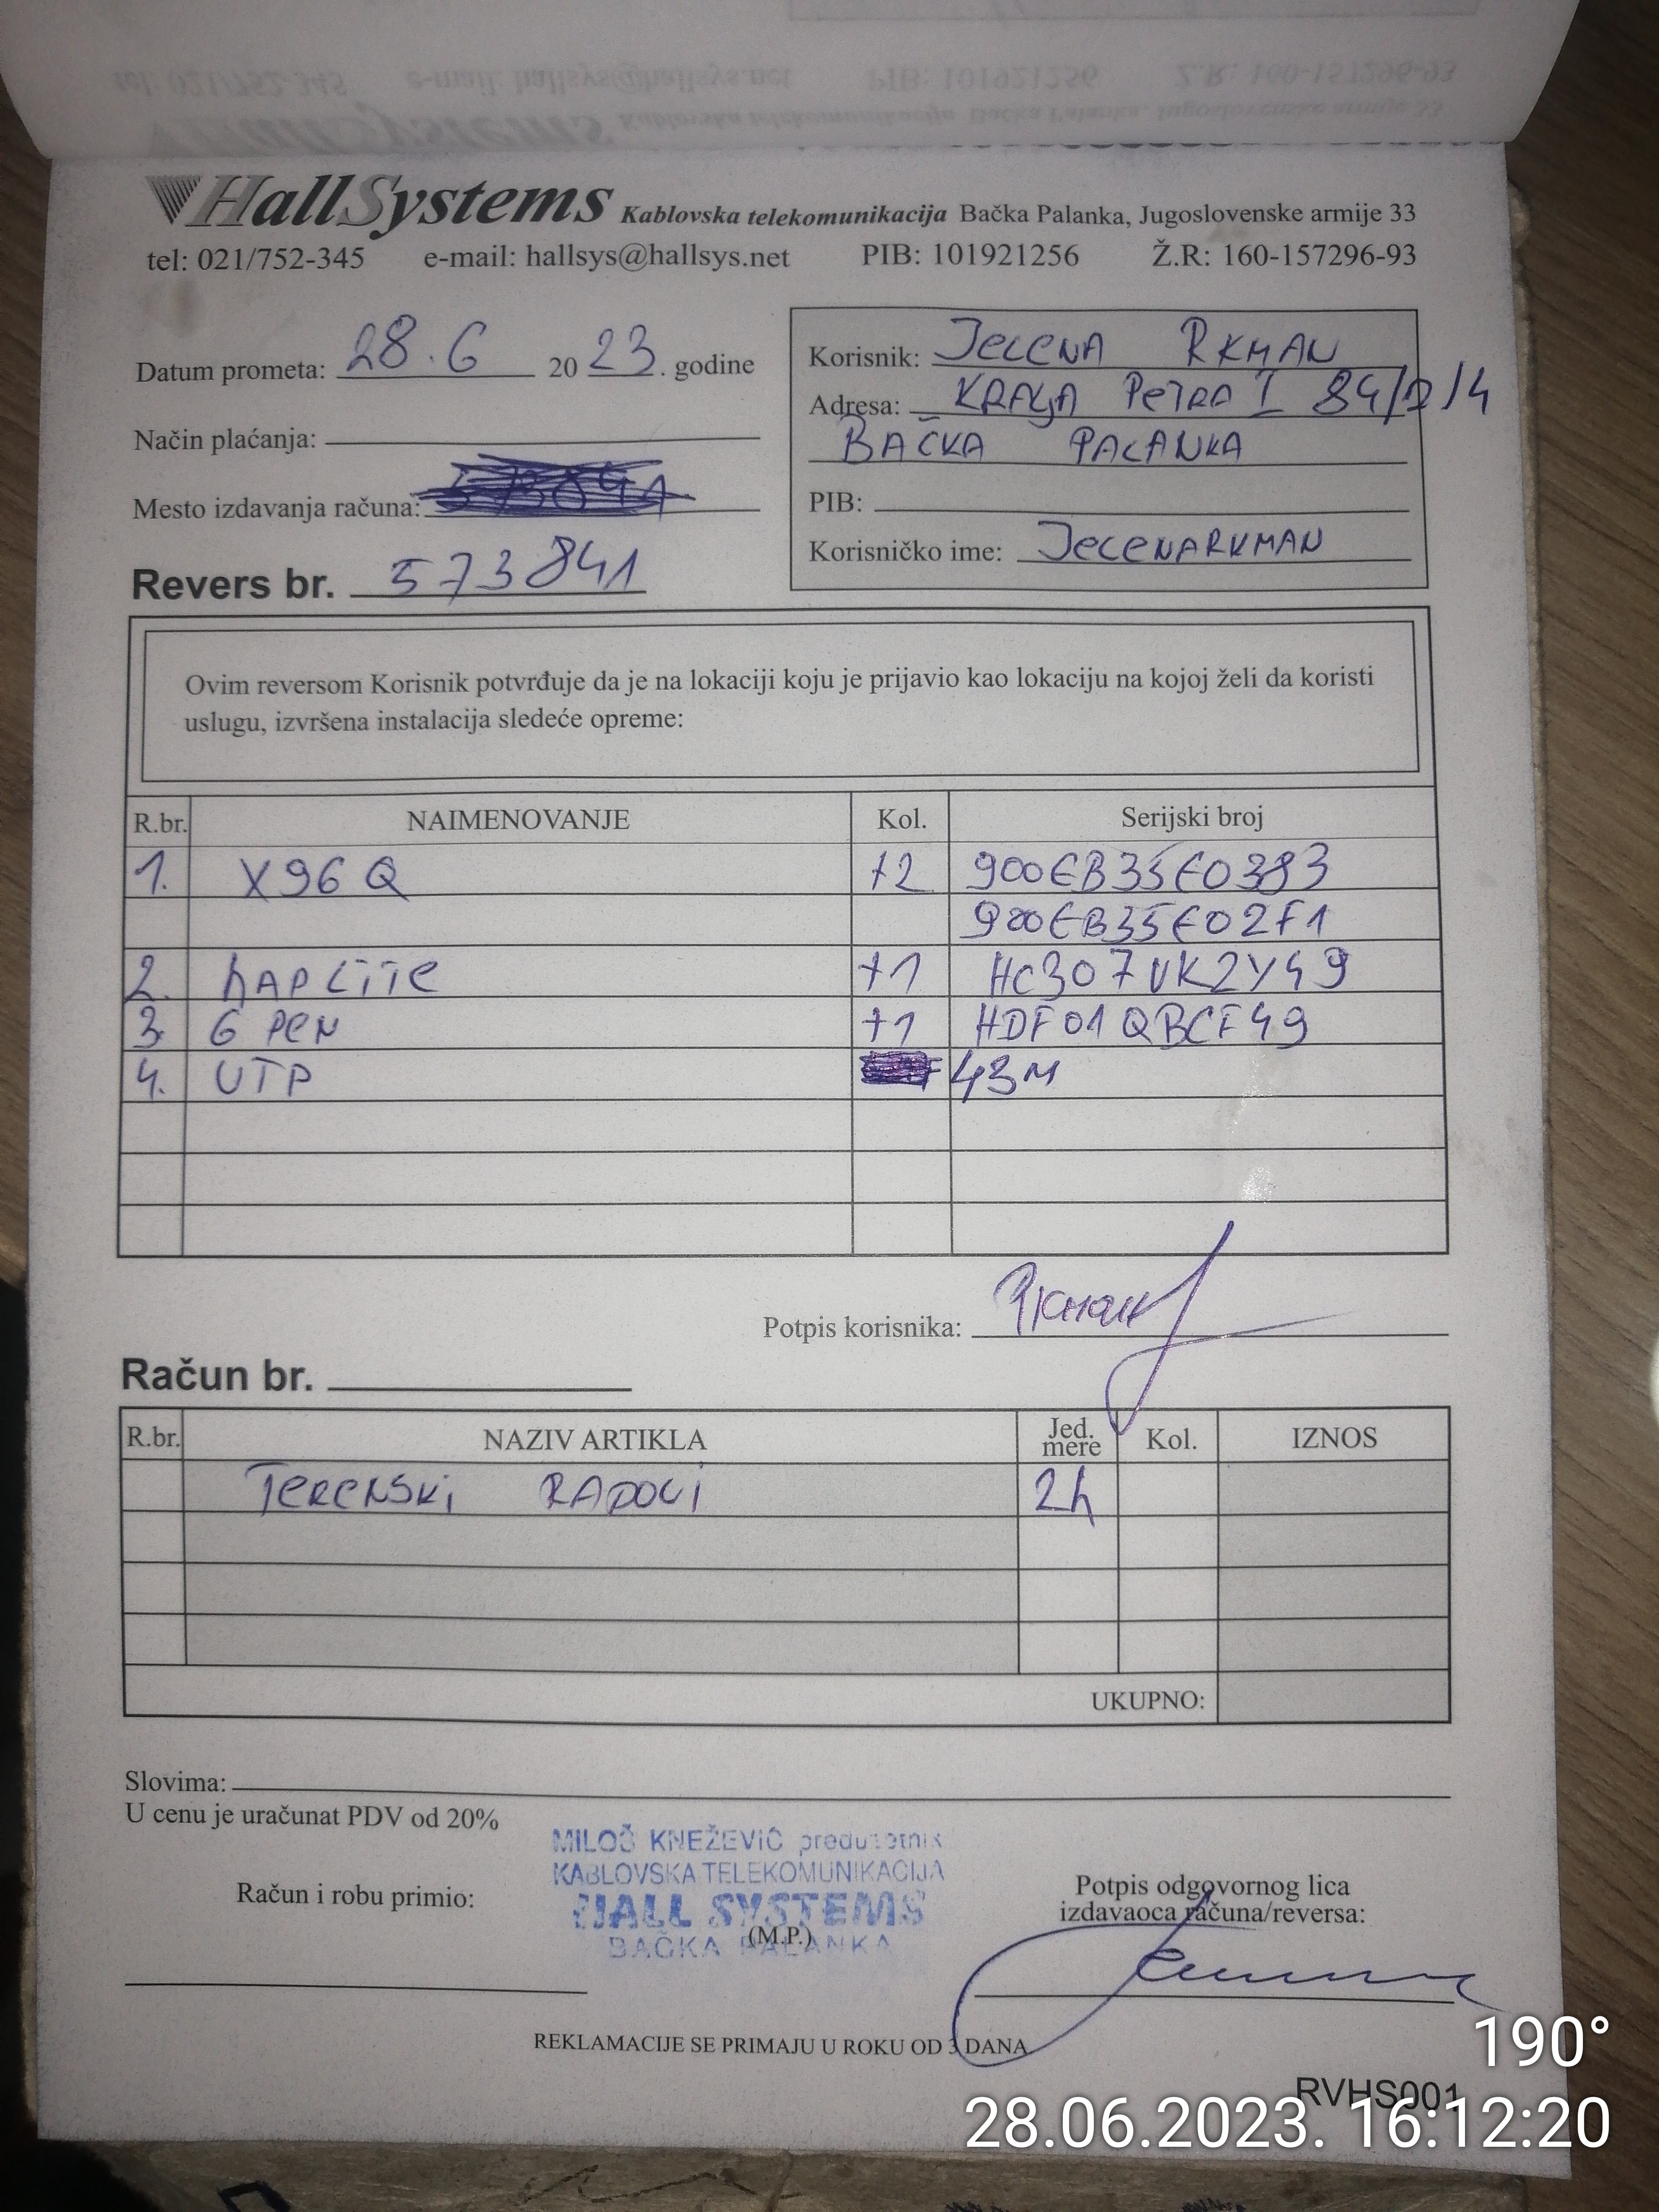 HallSystems Kablovska telekomunikacija Bačka Palanka, Jugoslovenske armije 33
tel: 021/752-345 e-mail: hallsys@hallsys.net PIB: 101921256 Ž.R: 160-157296-93
Datum prometa: 28.6 2023. godine
Način plaćanja:
Mesto izdavanja računa:
Revers br. 573841
Korisnik: JELENA RKMAN
Adresa: KRALJA PETRA I 84/2/4
BAČKA PALANKA
PIB:
Korisničko ime: JELENARKMAN
Ovim reversom Korisnik potvrđuje da je na lokaciji koju je prijavio kao lokaciju na kojoj želi da koristi
uslugu, izvršena instalacija sledeće opreme:
R.br. NAIMENOVANJE Kol. Serijski broj
1. X96Q +2 900EB35E0383
900EB35E02F1
2. hAP LITE +1 HC307VK2Y49
3. GPEN +1 HDF01QBCF49
4. UTP 43M
Potpis korisnika: Rkman
Račun br.
R.br. NAZIV ARTIKLA Jed. mere Kol. IZNOS
TERENSKI RADOVI 2h
UKUPNO:
Slovima:
U cenu je uračunat PDV od 20%
MILOŠ KNEŽEVIĆ preduzetnik
KABLOVSKA TELEKOMUNIKACIJA
HALL SYSTEMS
BAČKA PALANKA
Račun i robu primio:
(M.P.)
Potpis odgovornog lica
izdavaoca računa/reversa:
REKLAMACIJE SE PRIMAJU U ROKU OD 3 DANA
RVHS001
190°
28.06.2023. 16:12:20